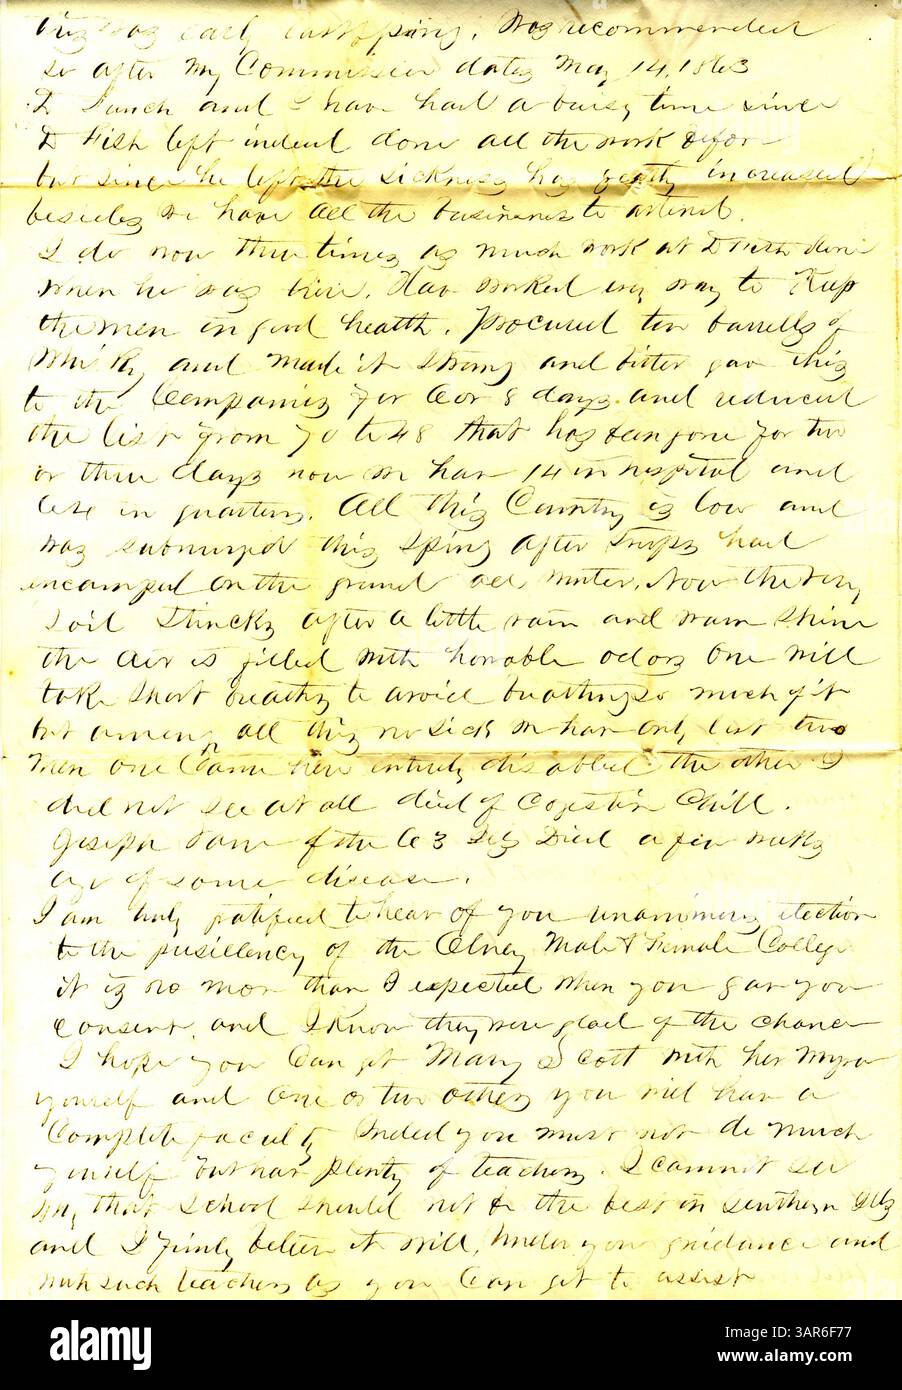 was early this spring. Was recommended
so after My Commission dates May 14, 1863
D Lunch and I have had a busy time since
D Fish left indeed done all the work before
but since he left the sickness has greatly increased
besides we have all the business to attend.
I do now three times as much work as D Fish done
when he was here. Have worked every way to Keep
the men in good health. Procured two barrells of
Whisky and made it strong and bitter gave this
to the Companies for 6 or 8 days and reduced
the list from 70 to 48 that has been gone for two
or three days now we have 14 in hospital and
in quarters. All this Country is low and
was submerged this Spring after Troops had
encamped on the ground all winter. Now the very
Soil Stincks after a little rain and warm Shine
the air is filled with horrable odors One will
take Short breaths to avoid breathing so much of it
but among all this sick we have only lost two
Men One Came here entirely disabled the other I
did not see at all died of Cogestion Chill.
Joseph of the 63 Ills Died a few weeks
ago of some disease.
I am truly gratified to hear of your unanimous election
to the presidency of the Olney Male & Female College
it is no more than I expected when you gave your
consent, and I know they were glad of the chance
I hope you Can get Mary Scott with her Myra
yourself and one or two others you will have a
Complete faculty Indeed you must not do much
yourself but have plenty of teachers. I cannot see
why that School should not be the best in Southern Ills
and I firmly believe it will, Under your guidance and
with such teachers as you Can get to assist
alamy
Image ID: 3AR6F77
www.alamy.com